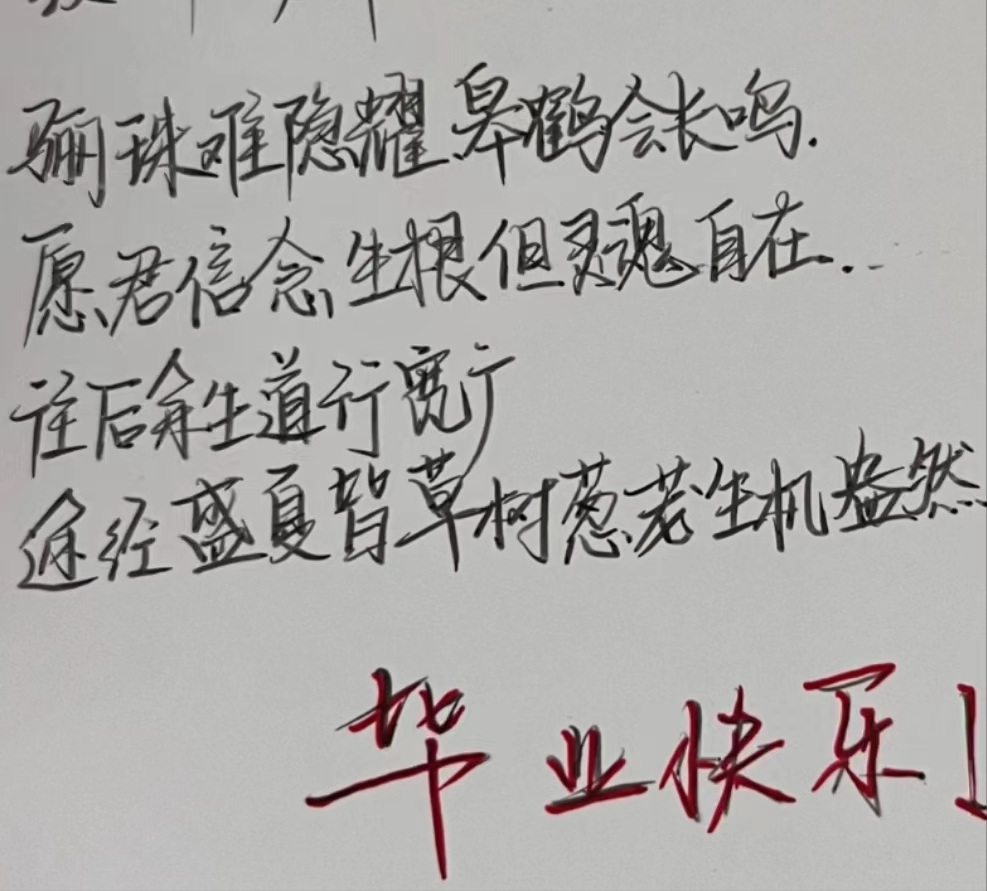 骊珠难隐耀,皋鹤会长鸣.
愿君信念生根但灵魂自在...
往后余生道行宽广
途经盛夏皆草树葱茏生机盎然
毕业快乐!